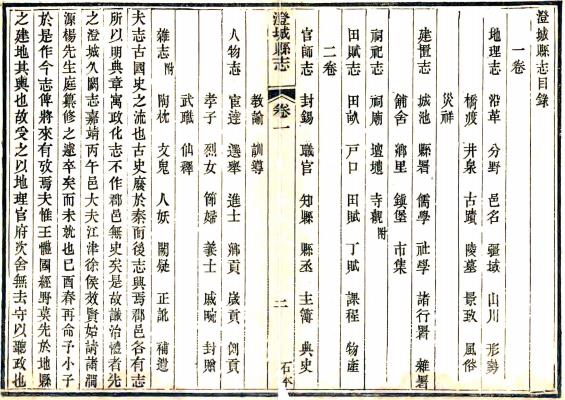 澄城縣志目錄
一卷
地理志 沿革 分野 邑名 疆域 山川 形勢
橋渡 井泉 古蹟 陵墓 景致 風俗
災祥
建置志 城池 縣署 儒學 社學 諸行署 雜署
舖舍 鄉里 鎮堡 市集
祠祀志 祠廟 壇壝 寺觀附
田賦志 田畝 戶口 田賦 丁賦 課程 物產
二卷
官師志 封錫 職官 知縣 縣丞 主簿 典史
澄城縣志 卷一 二 石本
教諭 訓導
人物志 宦達 選舉 進士 鄉貢 歲貢 例貢
孝子 烈女 節婦 義士 戚畹 封贈
武職 仙釋
雜志附 陶枕 文鬼 人妖 闕疑 正訛 補遺
夫志古國史之流也古史廢於秦而後志興焉郡邑各有志
所以明典章寓政化志不作郡邑無史矣是故議治體者先
之澄城久闕志嘉靖丙午邑大夫江津徐侯效賢始請諸澗
源楊先生庭纂修之遽卒矣而未就也己酉春再命予小子
於是作今志俾將來有攷焉夫惟王體國經野莫先於地縣
之建地其輿也故受之以地理官府次舍無去守以聽政也